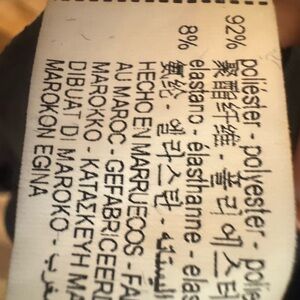 92% poliéster - polyester - polie
聚酯纤维 - 폴리에스터
8% elastano - élasthanne - elas
氨纶 - 엘라스탄
HECHO EN MARRUECOS - FA
AU MAROC - GEFABRICEERD
MAROKKO - KATAΣKEYH MA
DIBUAT DI MAROKO -
MAROKON EGINA